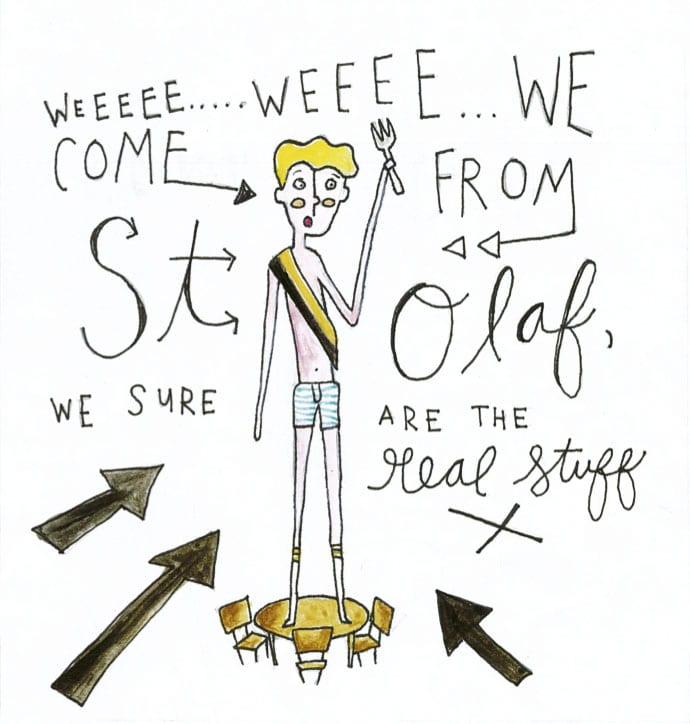 WEEEEE.....WEEEE...WE
COME FROM
St Olaf,
WE SURE ARE THE
real stuff